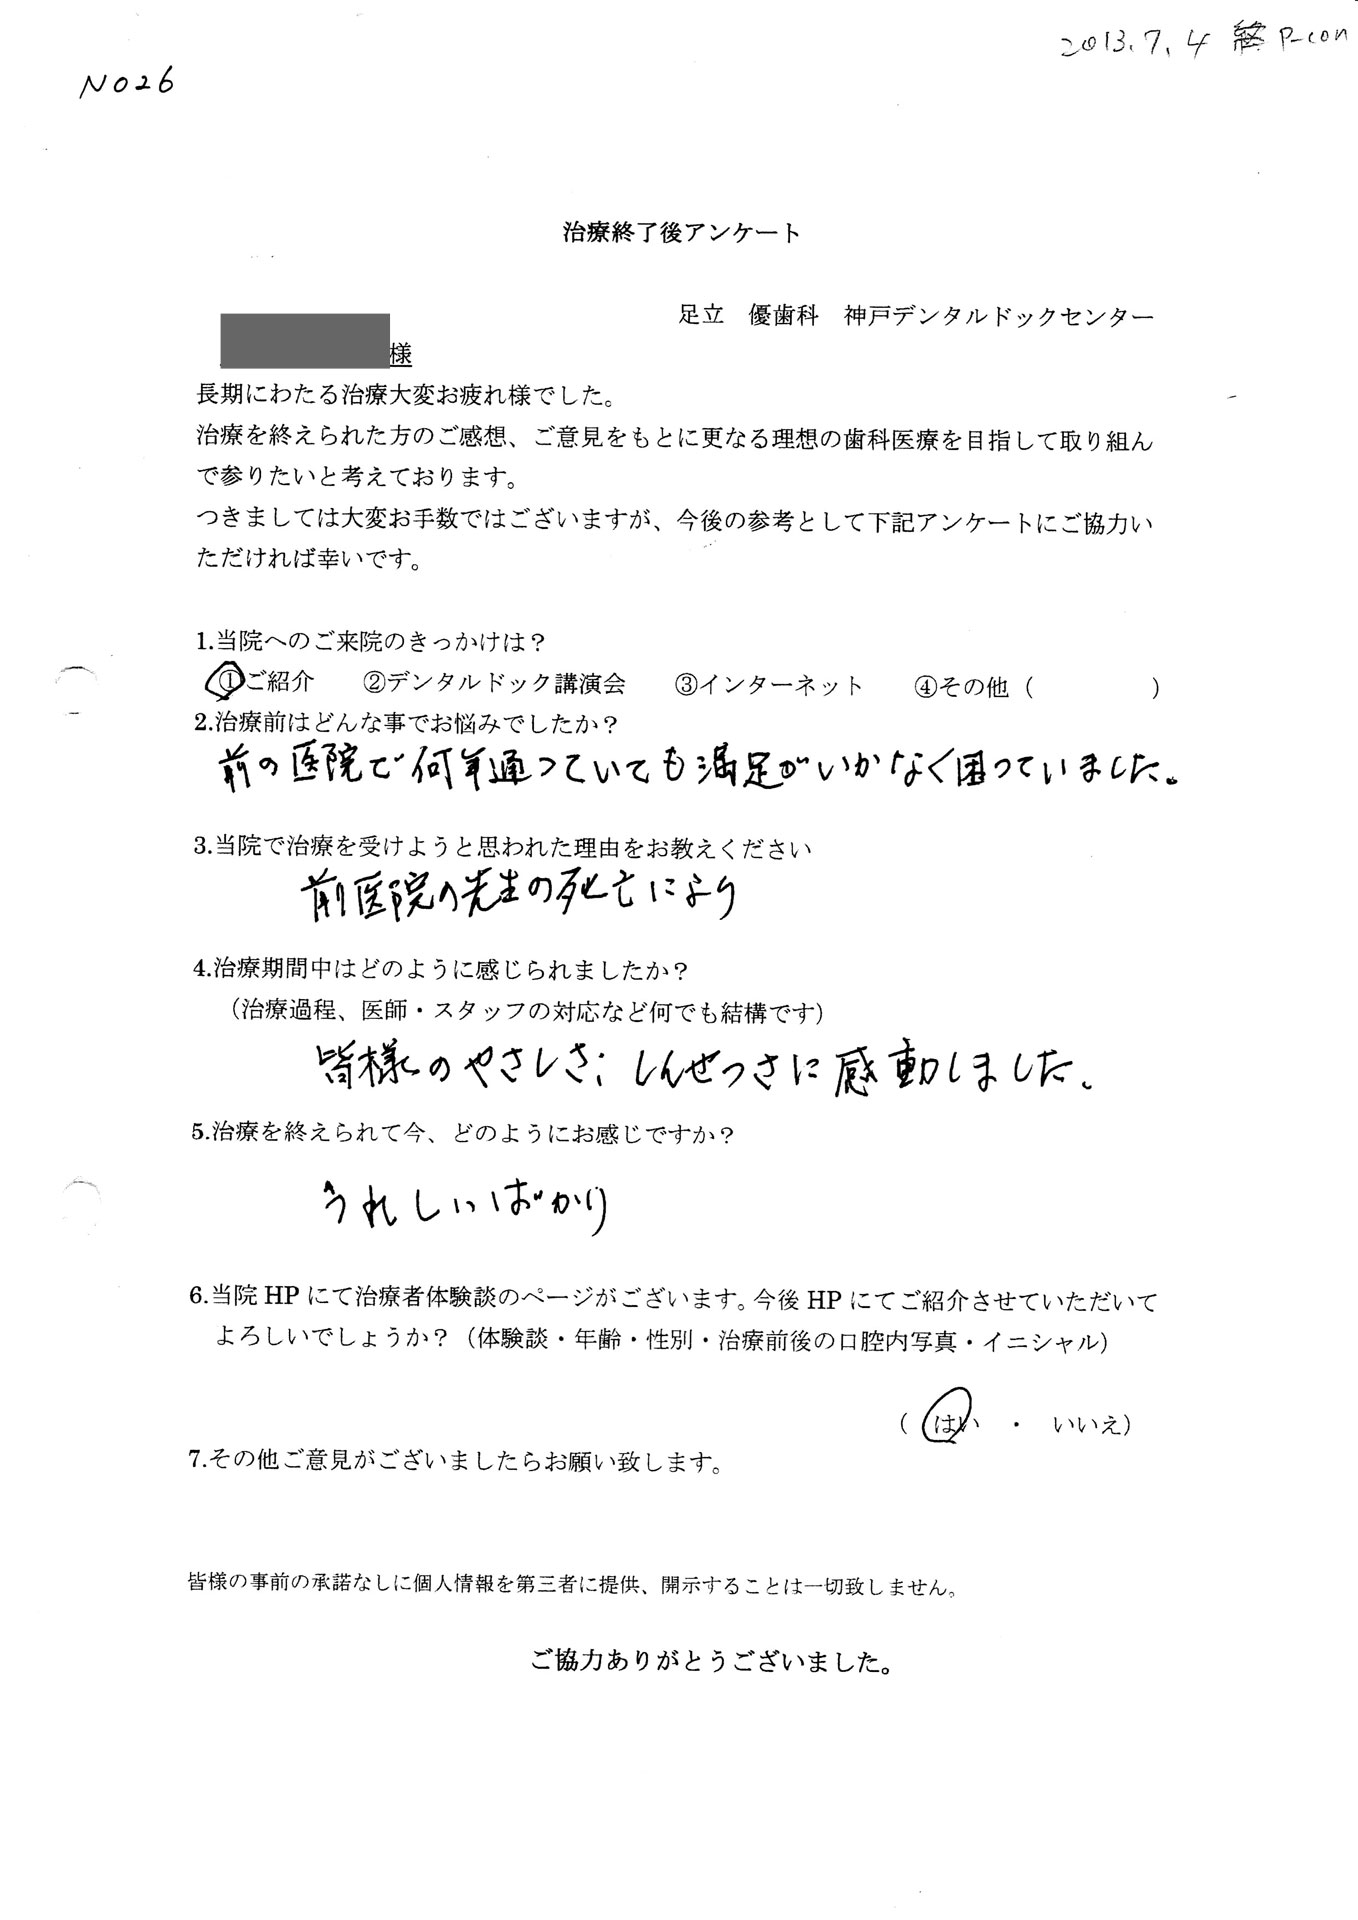 2013.7.4 終 P-con
NO26
治療終了後アンケート
足立　優歯科　神戸デンタルドックセンター
様
長期にわたる治療大変お疲れ様でした。
治療を終えられた方のご感想、ご意見をもとに更なる理想の歯科医療を目指して取り組ん
で参りたいと考えております。
つきましては大変お手数ではございますが、今後の参考として下記アンケートにご協力い
ただければ幸いです。
1.当院へのご来院のきっかけは？
①ご紹介　　②デンタルドック講演会　　③インターネット　　④その他（　　　　　）
2.治療前はどんな事でお悩みでしたか？
前の医院で何年通っていても満足がいかなく困っていました。
3.当院で治療を受けようと思われた理由をお教えください
前医院の先生の死亡により
4.治療期間中はどのように感じられましたか？
（治療過程、医師・スタッフの対応など何でも結構です）
皆様のやさしさ、しんせつさに感動しました。
5.治療を終えられて今、どのようにお感じですか？
うれしいばかり
6.当院 HP にて治療者体験談のページがございます。今後 HP にてご紹介させていただいて
よろしいでしょうか？（体験談・年齢・性別・治療前後の口腔内写真・イニシャル）
（　はい　・　いいえ）
7.その他ご意見がございましたらお願い致します。
皆様の事前の承諾なしに個人情報を第三者に提供、開示することは一切致しません。
ご協力ありがとうございました。